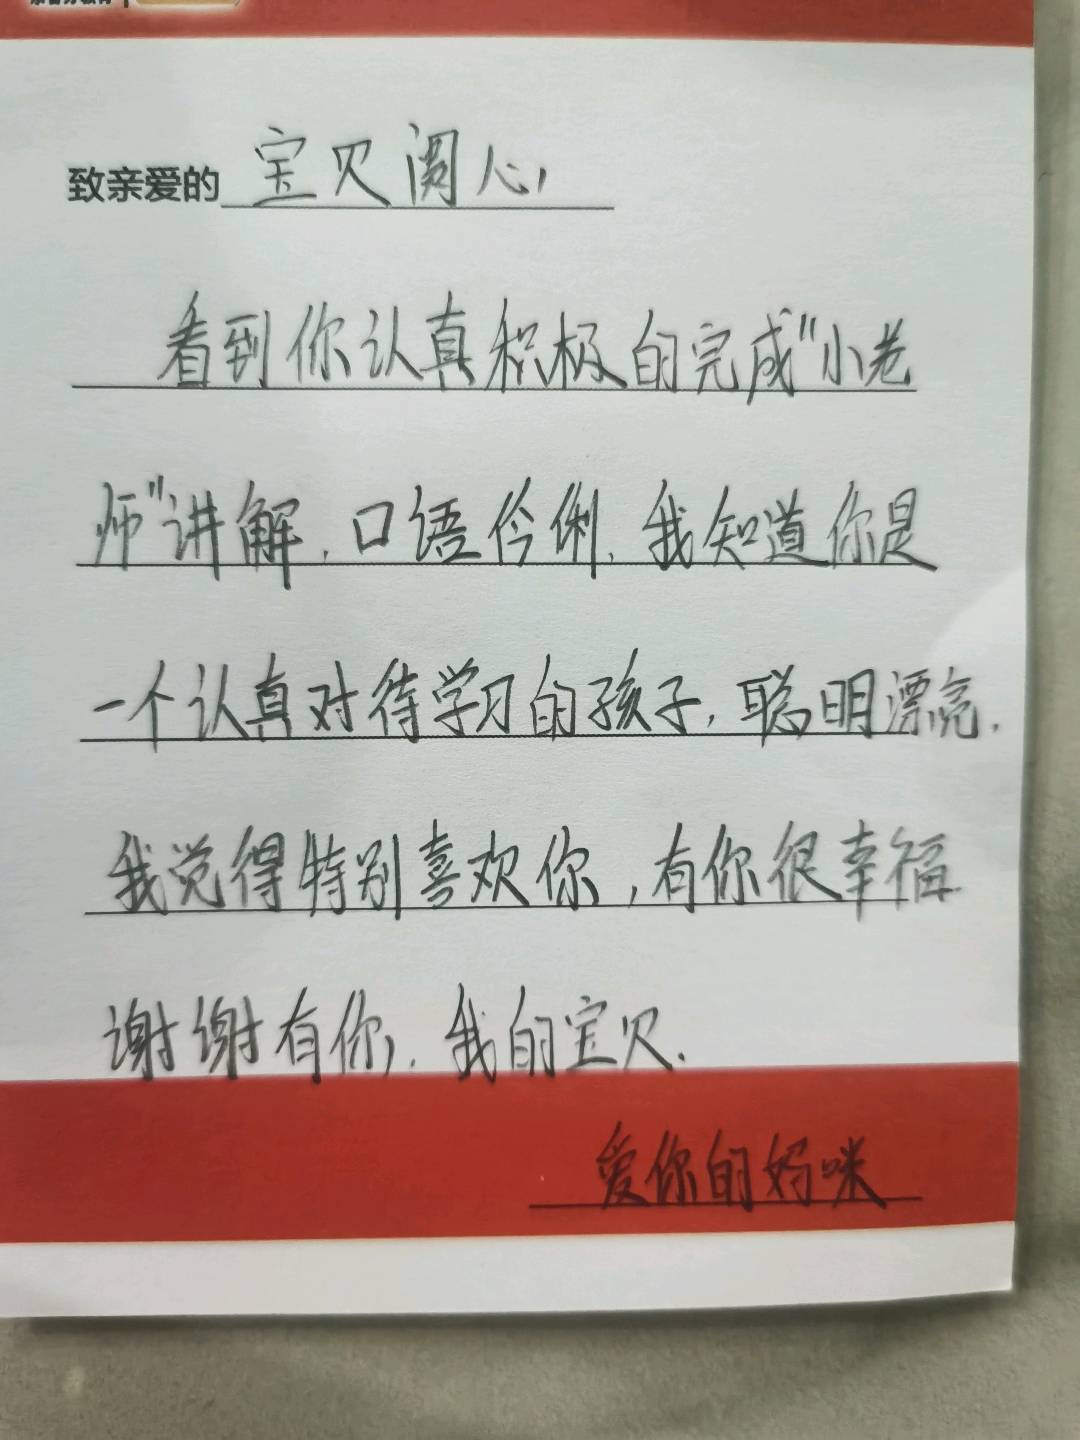 致亲爱的 宝贝阅心,
看到你认真积极的完成"小老
师"讲解,口语伶俐,我知道你是
一个认真对待学习的孩子,聪明漂亮.
我觉得特别喜欢你,有你很幸福
谢谢有你,我的宝贝.
爱你的妈咪